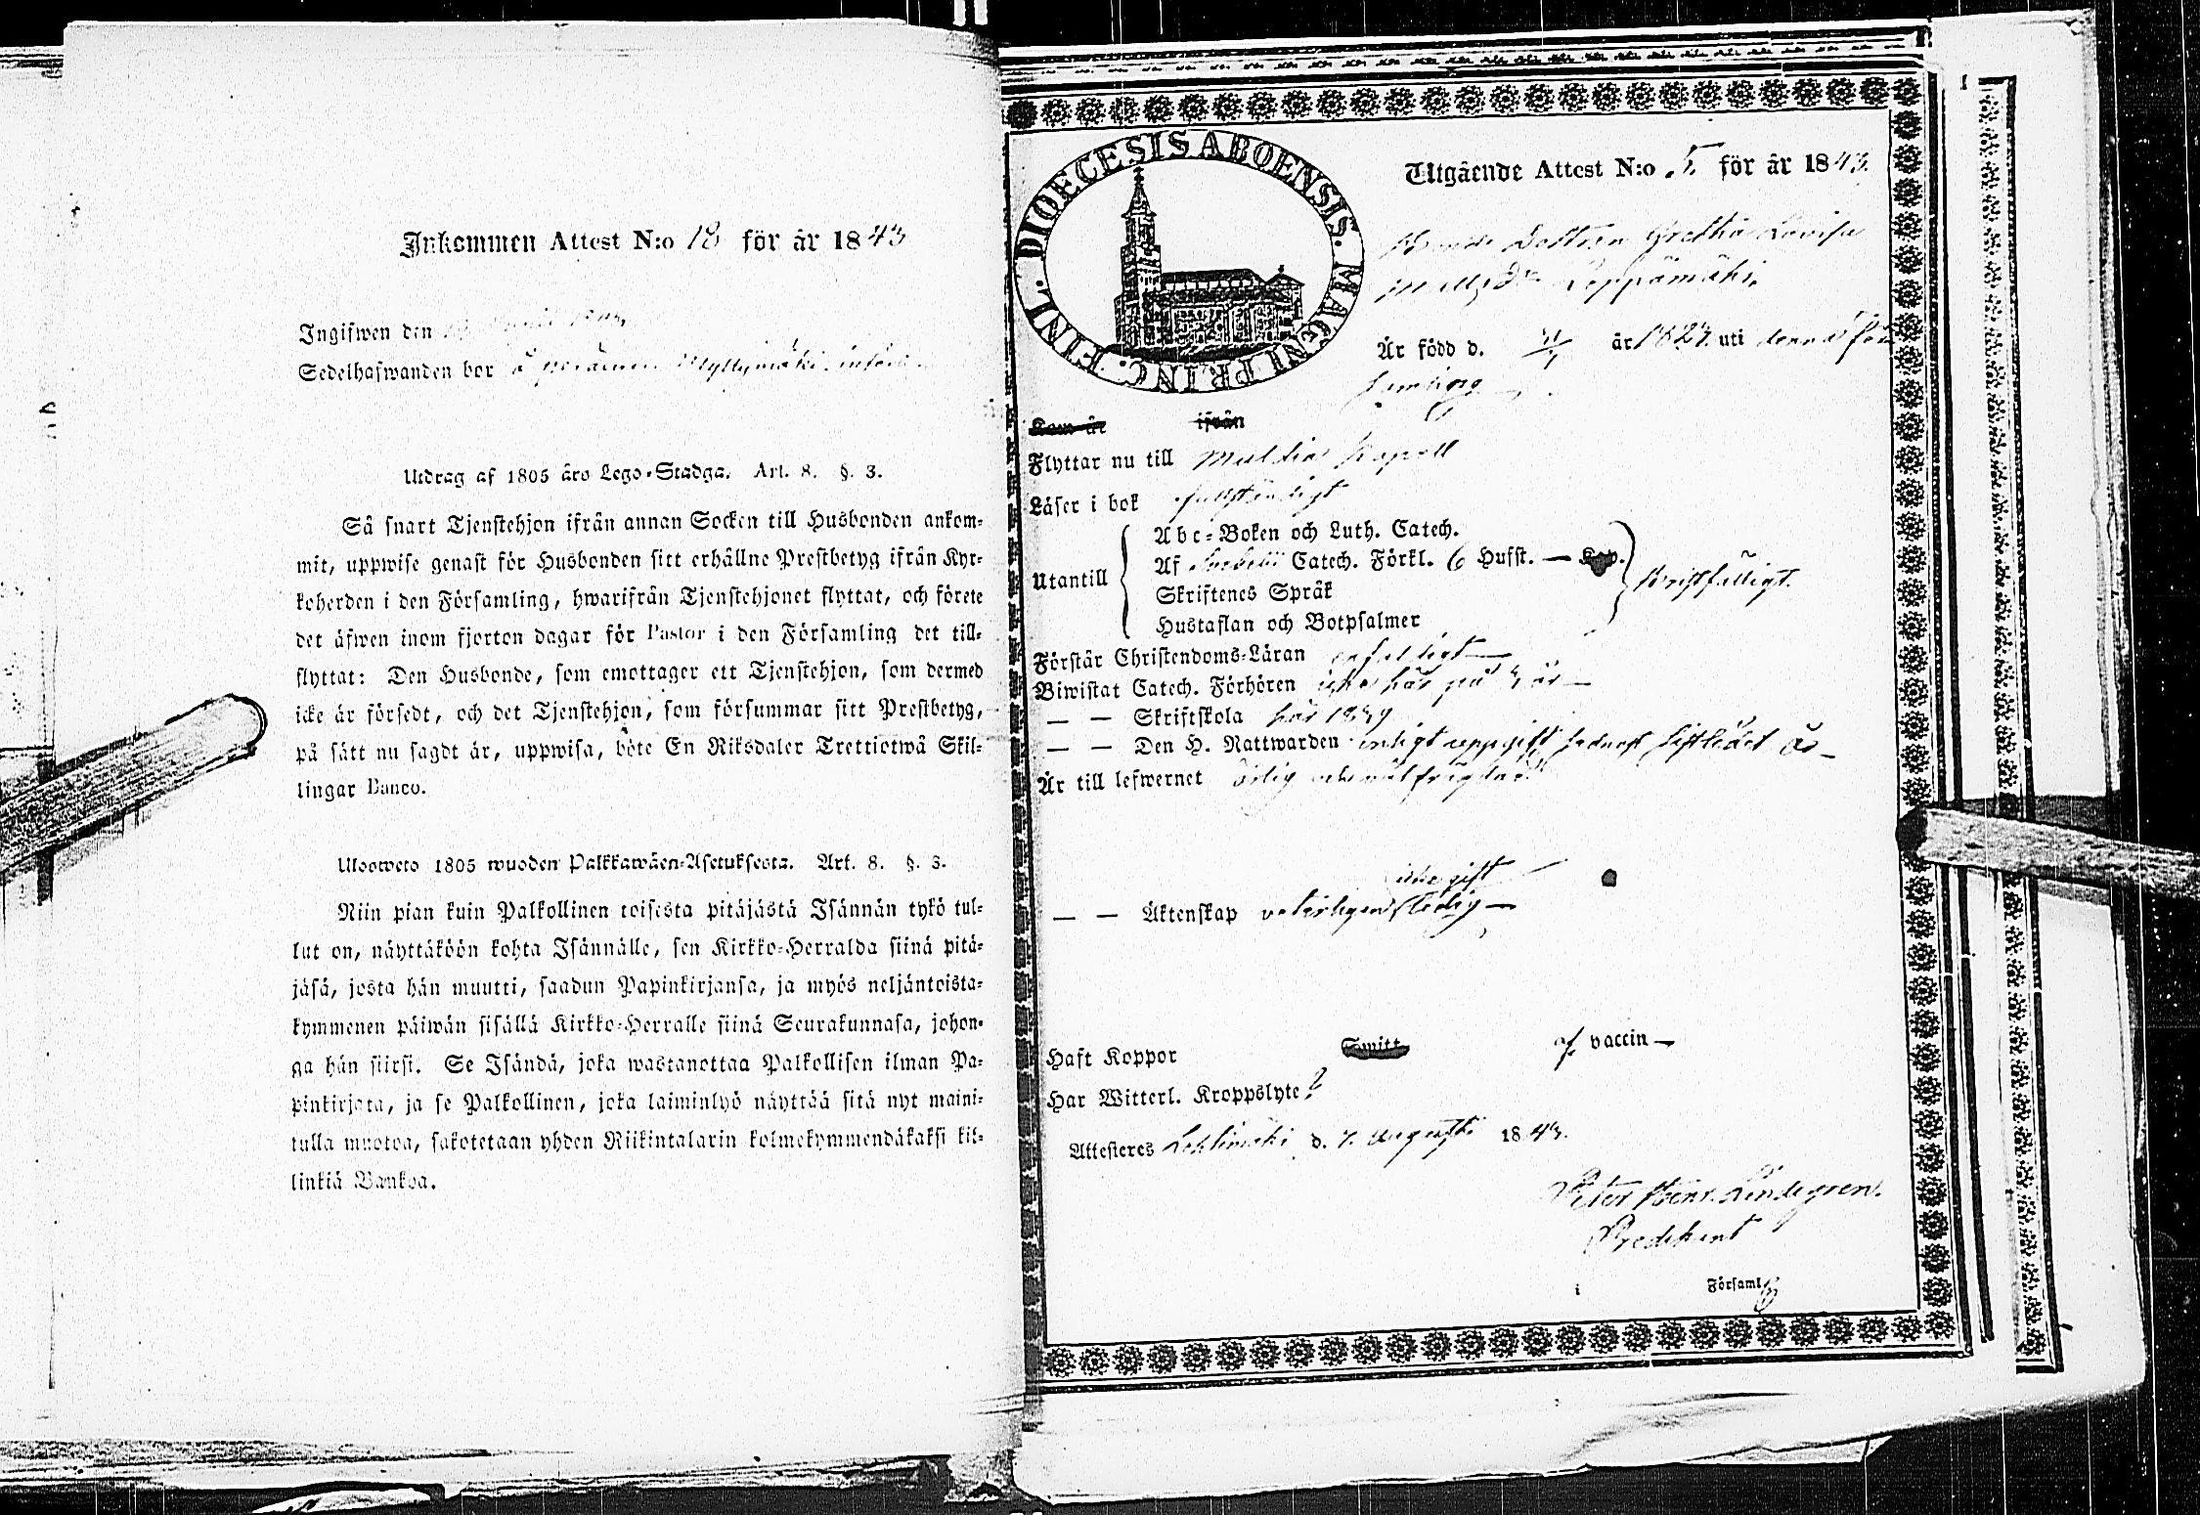 Inkommen Attest N:o 18 för år 1843
Ingifwen den
Sedelhafwanden bor å Myllymäki
Utdrag af 1805 åro Lego-Stadga. Art. 8. §. 3.
Så snart Tjenstehjon ifrån annan Socken till Husbonden ankom-
mit, uppwise genast för Husbonden sitt erhållne Prestbetyg ifrån Kyr-
koherden i den Församling, hwarifrån Tjenstehjonet flyttat, och förete
det äfwen inom fjorton dagar för Pastor i den Församling det till-
flyttat: Den Husbonde, som emottager ett Tjenstehjon, som dermed
icke är försedt, och det Tjenstehjon, som försummar sitt Prestbetyg,
på sätt nu sagdt är, uppwisa, böte En Riksdaler Trettiotwå Skil-
lingar Banco.
Ulosweto 1805 wuoden Palkkawäen-Asetuksesta. Art. 8. §. 3.
Niin pian kuin Palkollinen toisesta pitäjästä Isännän tykö tul-
lut on, näyttäköön kohta Isännälle, sen Kirkko-Herralda siinä pitä-
jäsä, josta hän muutti, saadun Papinkirjansa, ja myös neljäntoista-
kymmenen päiwän sisällä Kirkko-Herralle siinä Seurakunnasa, johon-
ga hän siirsi. Se Isändä, joka wastanottaa Palkollisen ilman Pa-
pinkirjata, ja se Palkollinen, joka laiminlyö näyttää sitä nyt maini-
tulla muotoa, sakotetaan yhden Riikintalarin kolmekymmendäkaksi kil-
linkiä Bankoa.
DIOECESIS ABOENSIS. MAGNI PRINC. FINL.
Utgående Attest N:o 5 för år 1843.
Dottren Gretha Lovisa
Matts Dr Leppämäki,
Är född d. år 1823 uti denna för
samling
Kom år ifrån
Flyttar nu till Multia Kapell
Läser i bok fullständigt
Utantill
Abc-Boken och Luth. Catech.
Af Svebelii Catech. Förkl. 6 Hufst. — Kap.
Skriftenes Språk
Hustaflan och Botpsalmer
bristfälligt.
Förstår Christendoms-Läran enfaldigt
Biwistat Catech. Förhören icke här på 3 år
— — Skriftskola här 1839
— — Den H. Nattwarden enligt uppgift sednast sistledet år
Är till lefwernet ärlig och välfrägdad
icke gift
— — Äktenskap veterligen ledig —
Haft Koppor Smitt. af vaccin —
Har Witterl. Kroppslyte?
Attesteres Lehtimäki d. 7 Augusti 1843.
Peter Henr. Lindegren.
Predikant
i Församl.